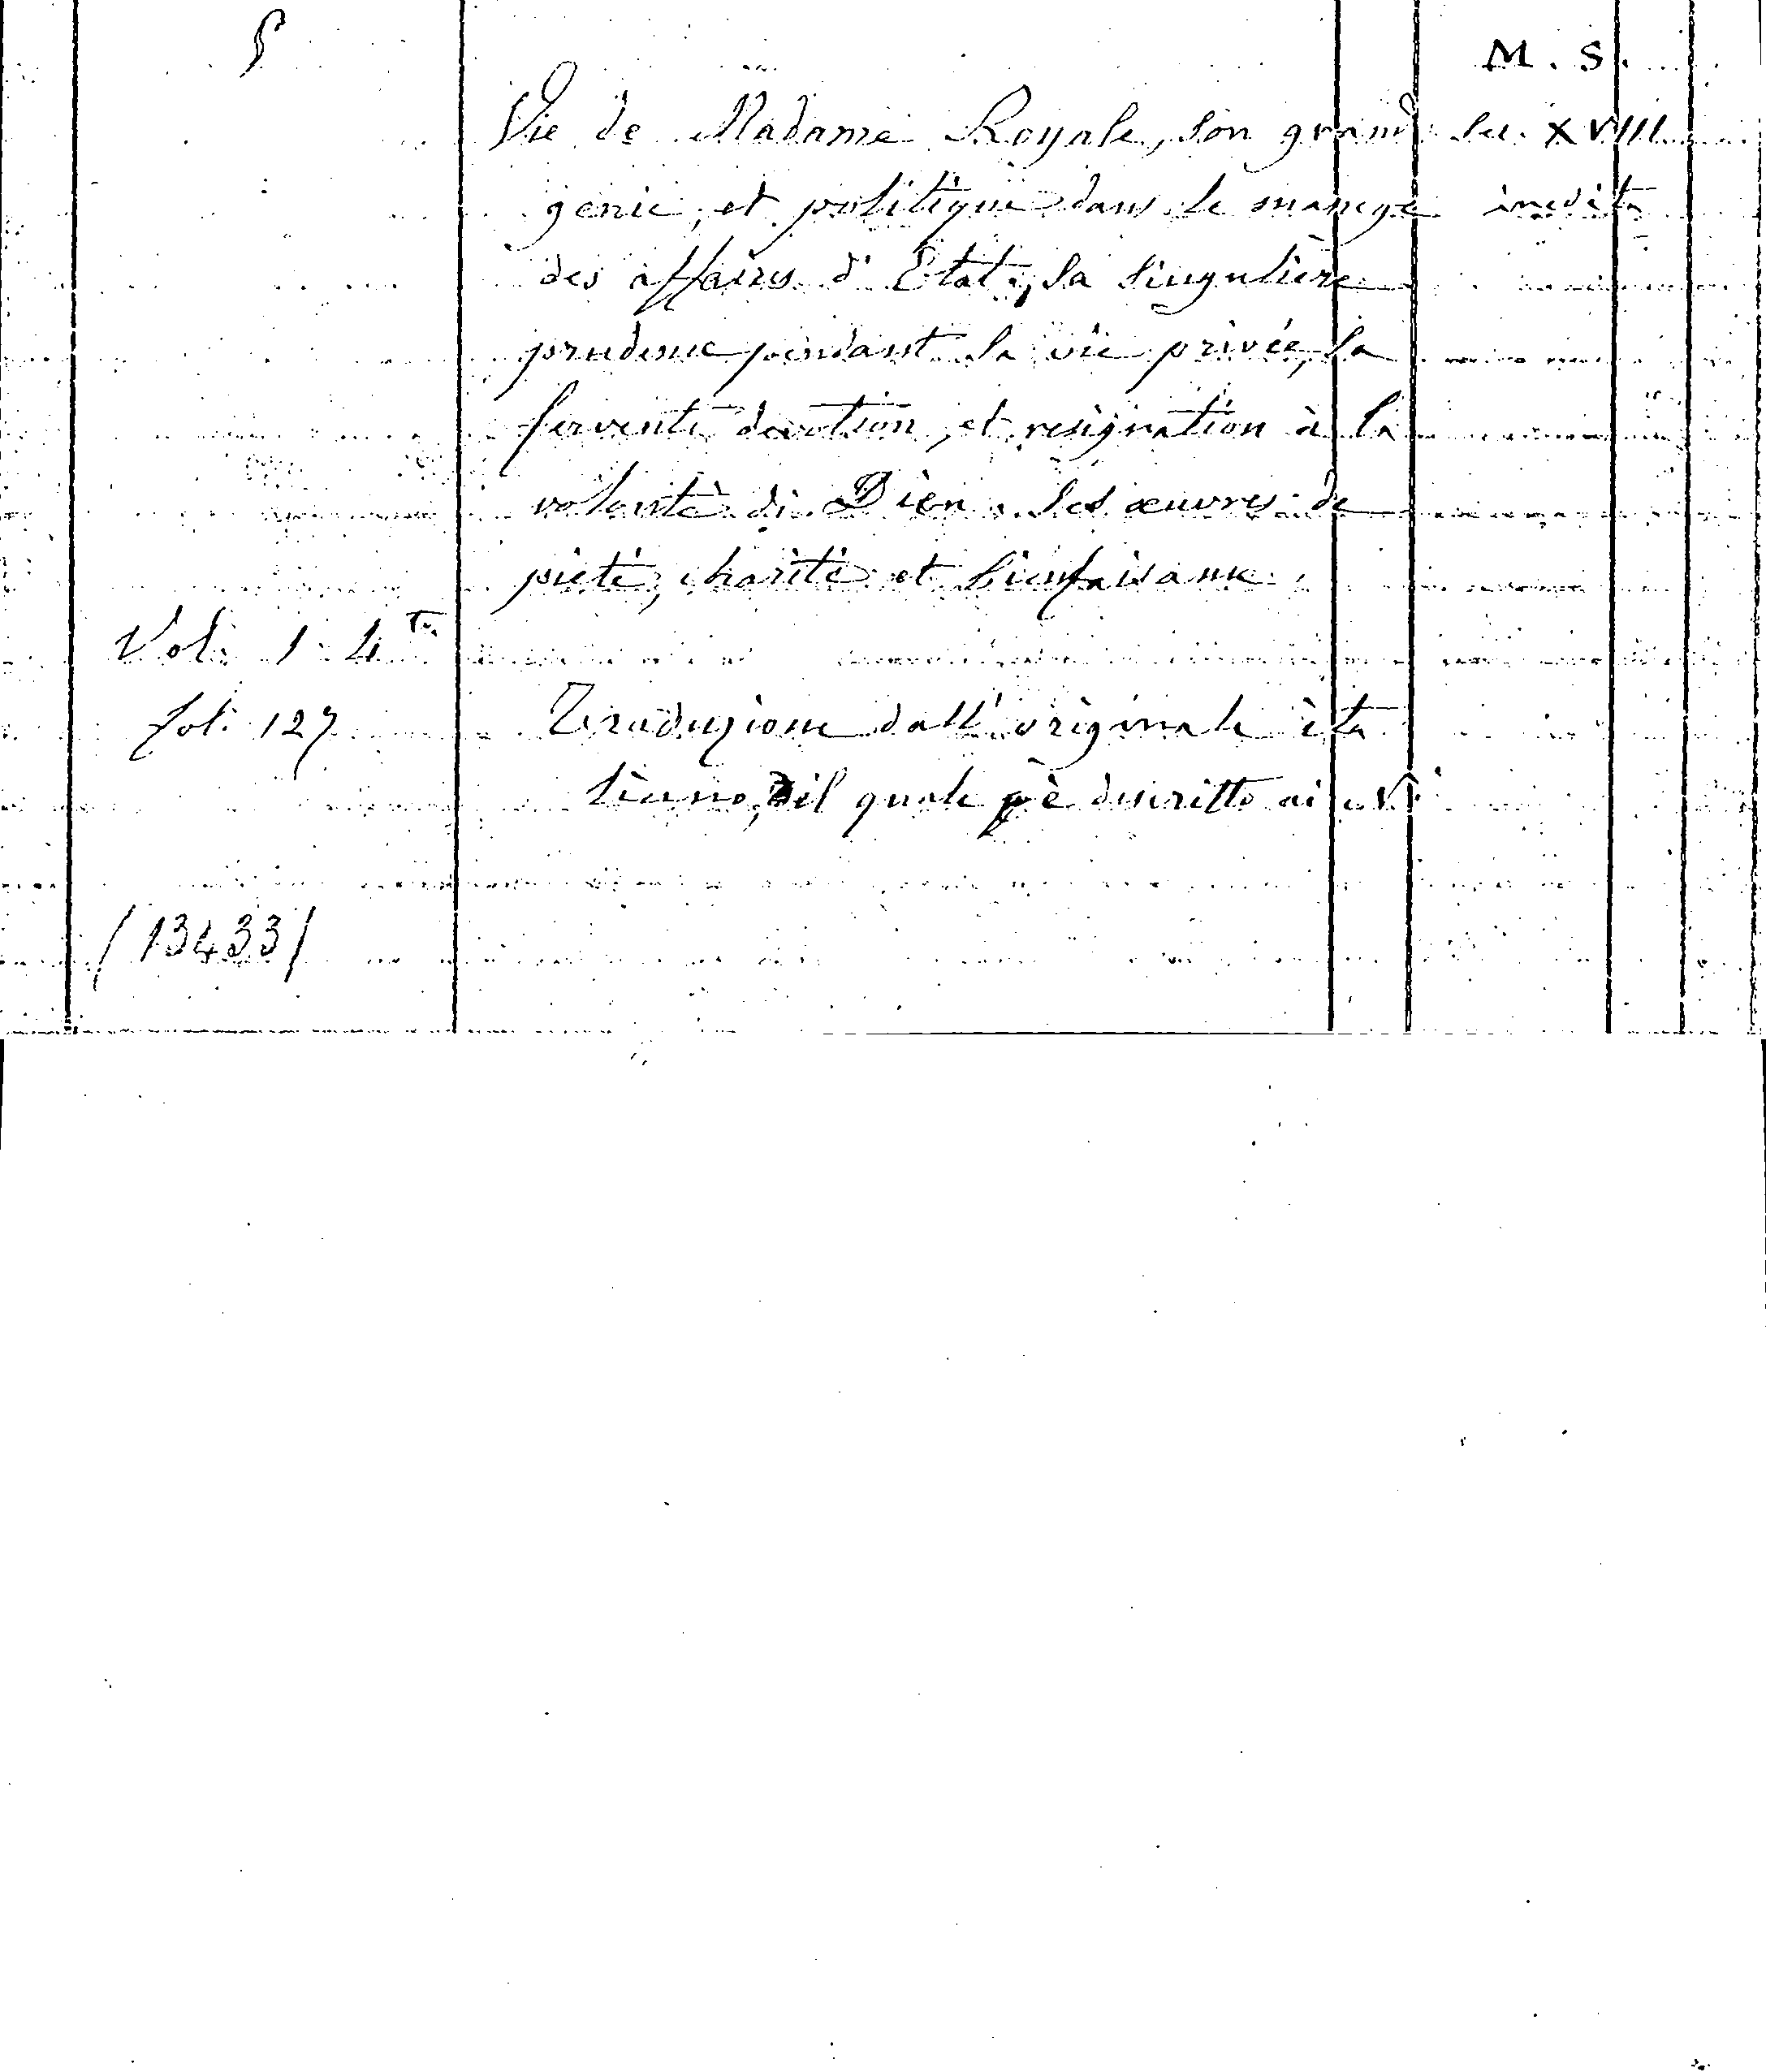 M. S.
Vie de Madame Royale, son grand Sec. XVIII
genie, et politique dans le manege inedita
des affaires d'Etat, sa singuliere
prudence pendant sa vie privée, sa
fervente devotion, et resignation à la
volonté di Dieu. Ses œuvres de
pieté, charité et bienfaisance
Vol. 1. 4to
fol. 127 Traduzione dall' originale ita
liano, il quale è descritto ai
(13433)